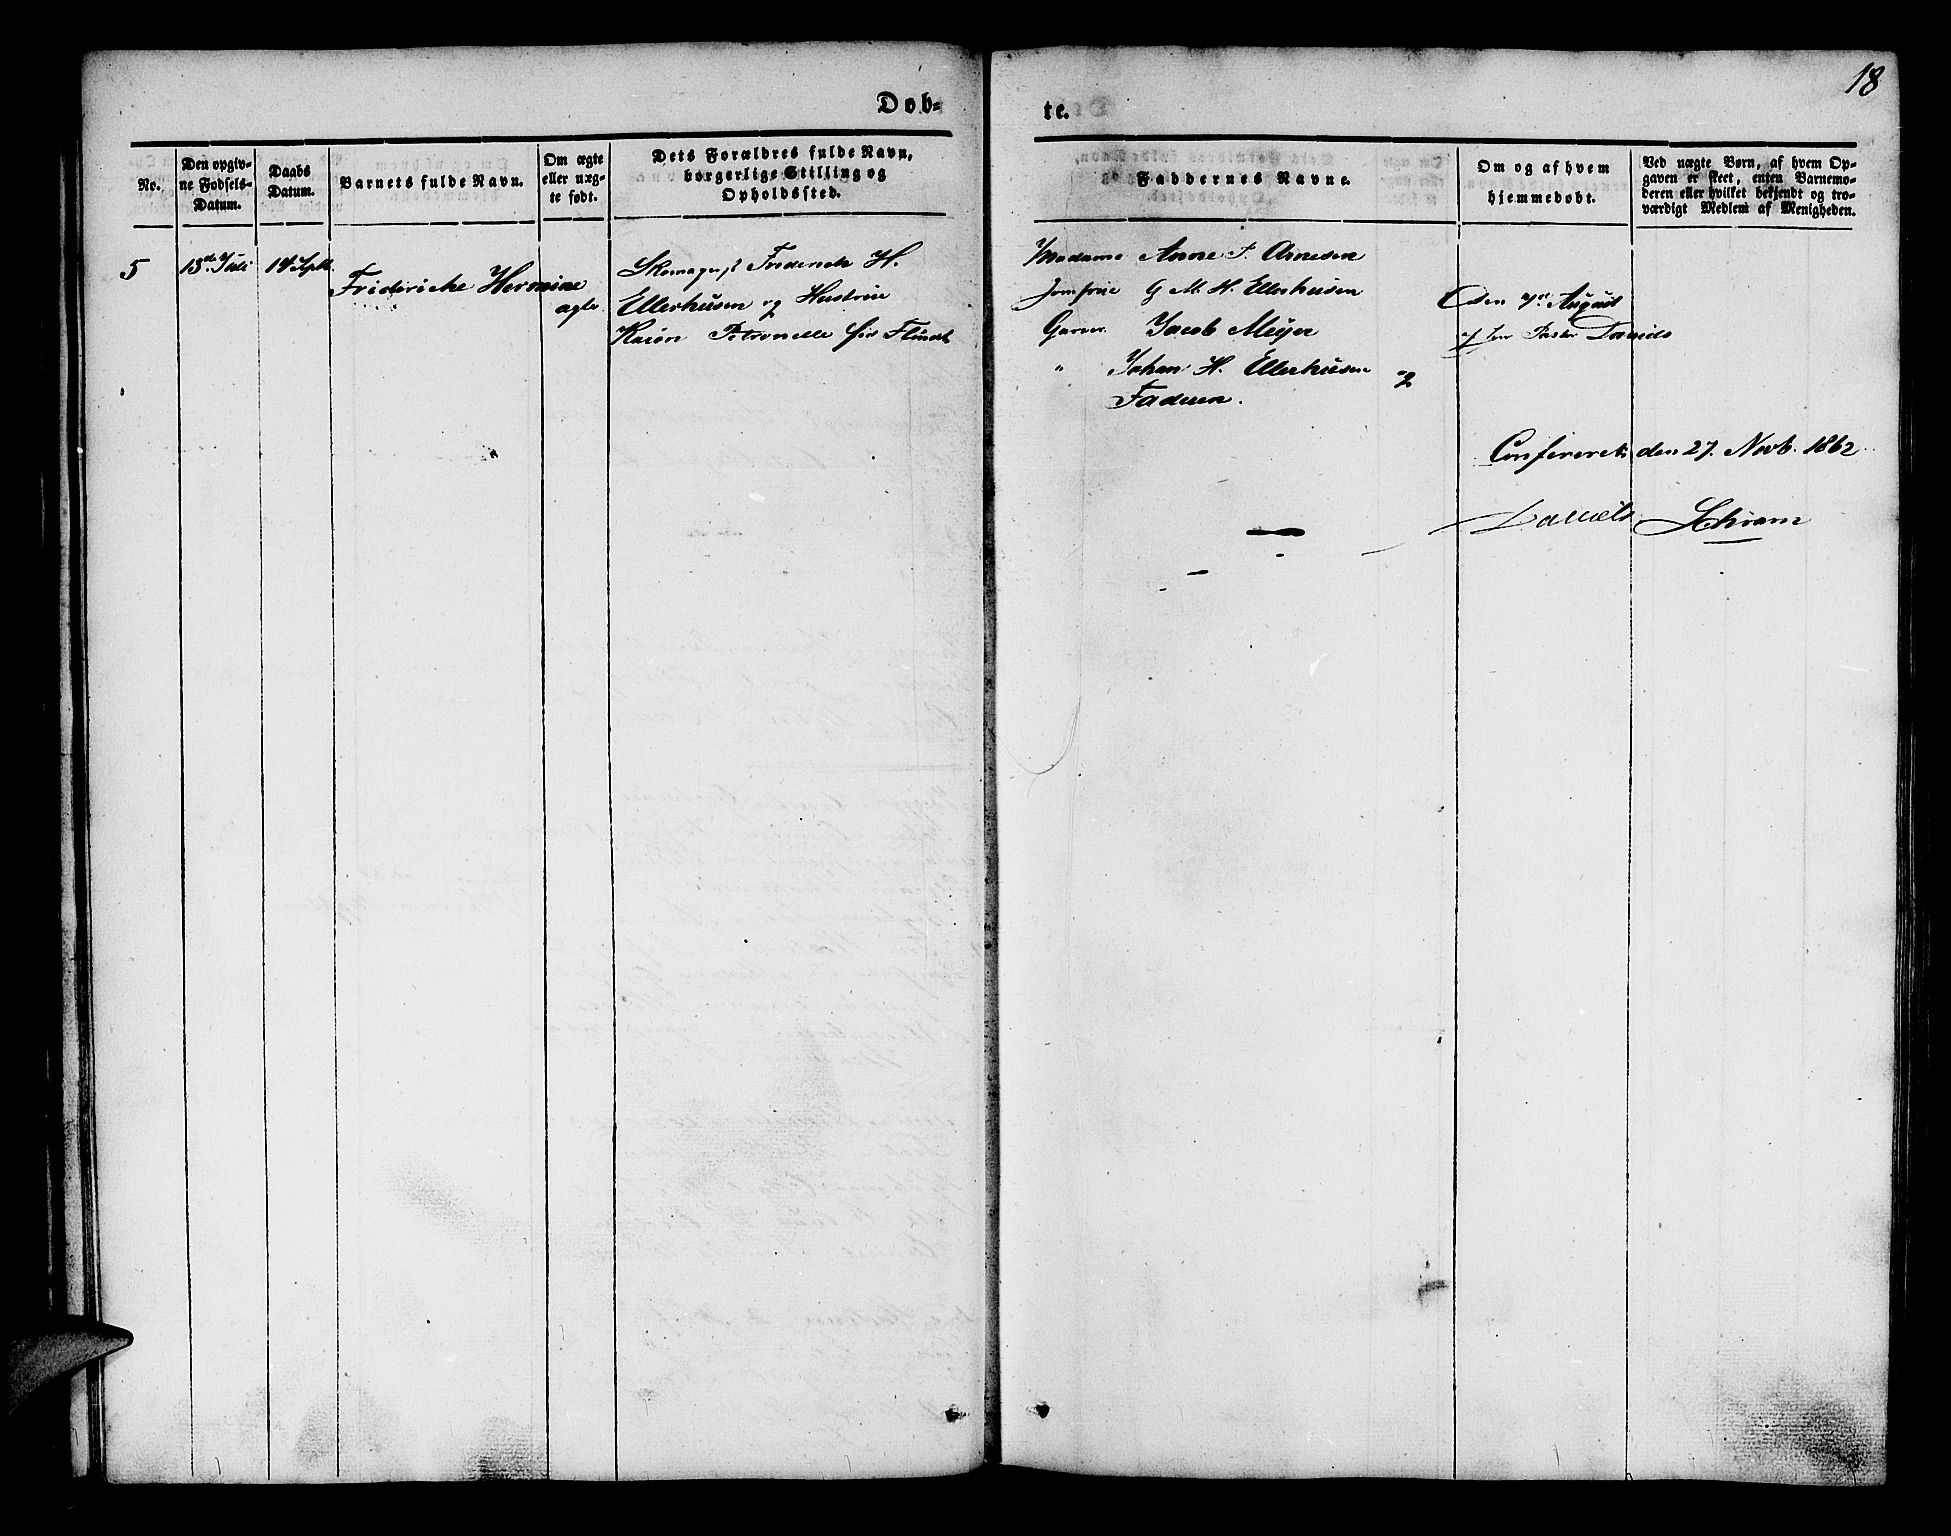 18
Døb-
te.
No.
Den opgiv-
ne Fødsels-
Datum.
Daabs
Datum.
Barnets fulde Navn.
Om ægte
eller uæg-
te født.
Dets Forældres fulde Navn,
borgerlige Stilling og
Opholdssted.
Faddernes Navne.
Om og af hvem
hjemmedøbt.
Ved uægte Børn, af hvem Op-
gaven er skeet, enten Barnemo-
deren eller hvilket bekjendt og tro-
værdigt Medlem af Menigheden.
5
13de Juli
14 Sept.
Friderikke Hermine
ægte
Skomagers. Frederick H.
Ellerhusen og Hustrue
Karen Petronelle
Madame Anne F. Arnesen
Jomfrue G M. H. Ellerhusen
Garver. Jacob Meyer
" Johan H. Ellerhusen og
Faderen.
den 7de August
af Hr Pastor Daniels
Confereret den 27. Novb. 1862
Daniels Schram